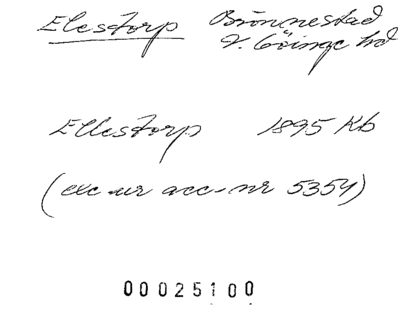 Elestorp Brönnestad
V. Göinge hd
Ellestorp 1895 Kb
(exc ur acc-nr 5354)
00025100